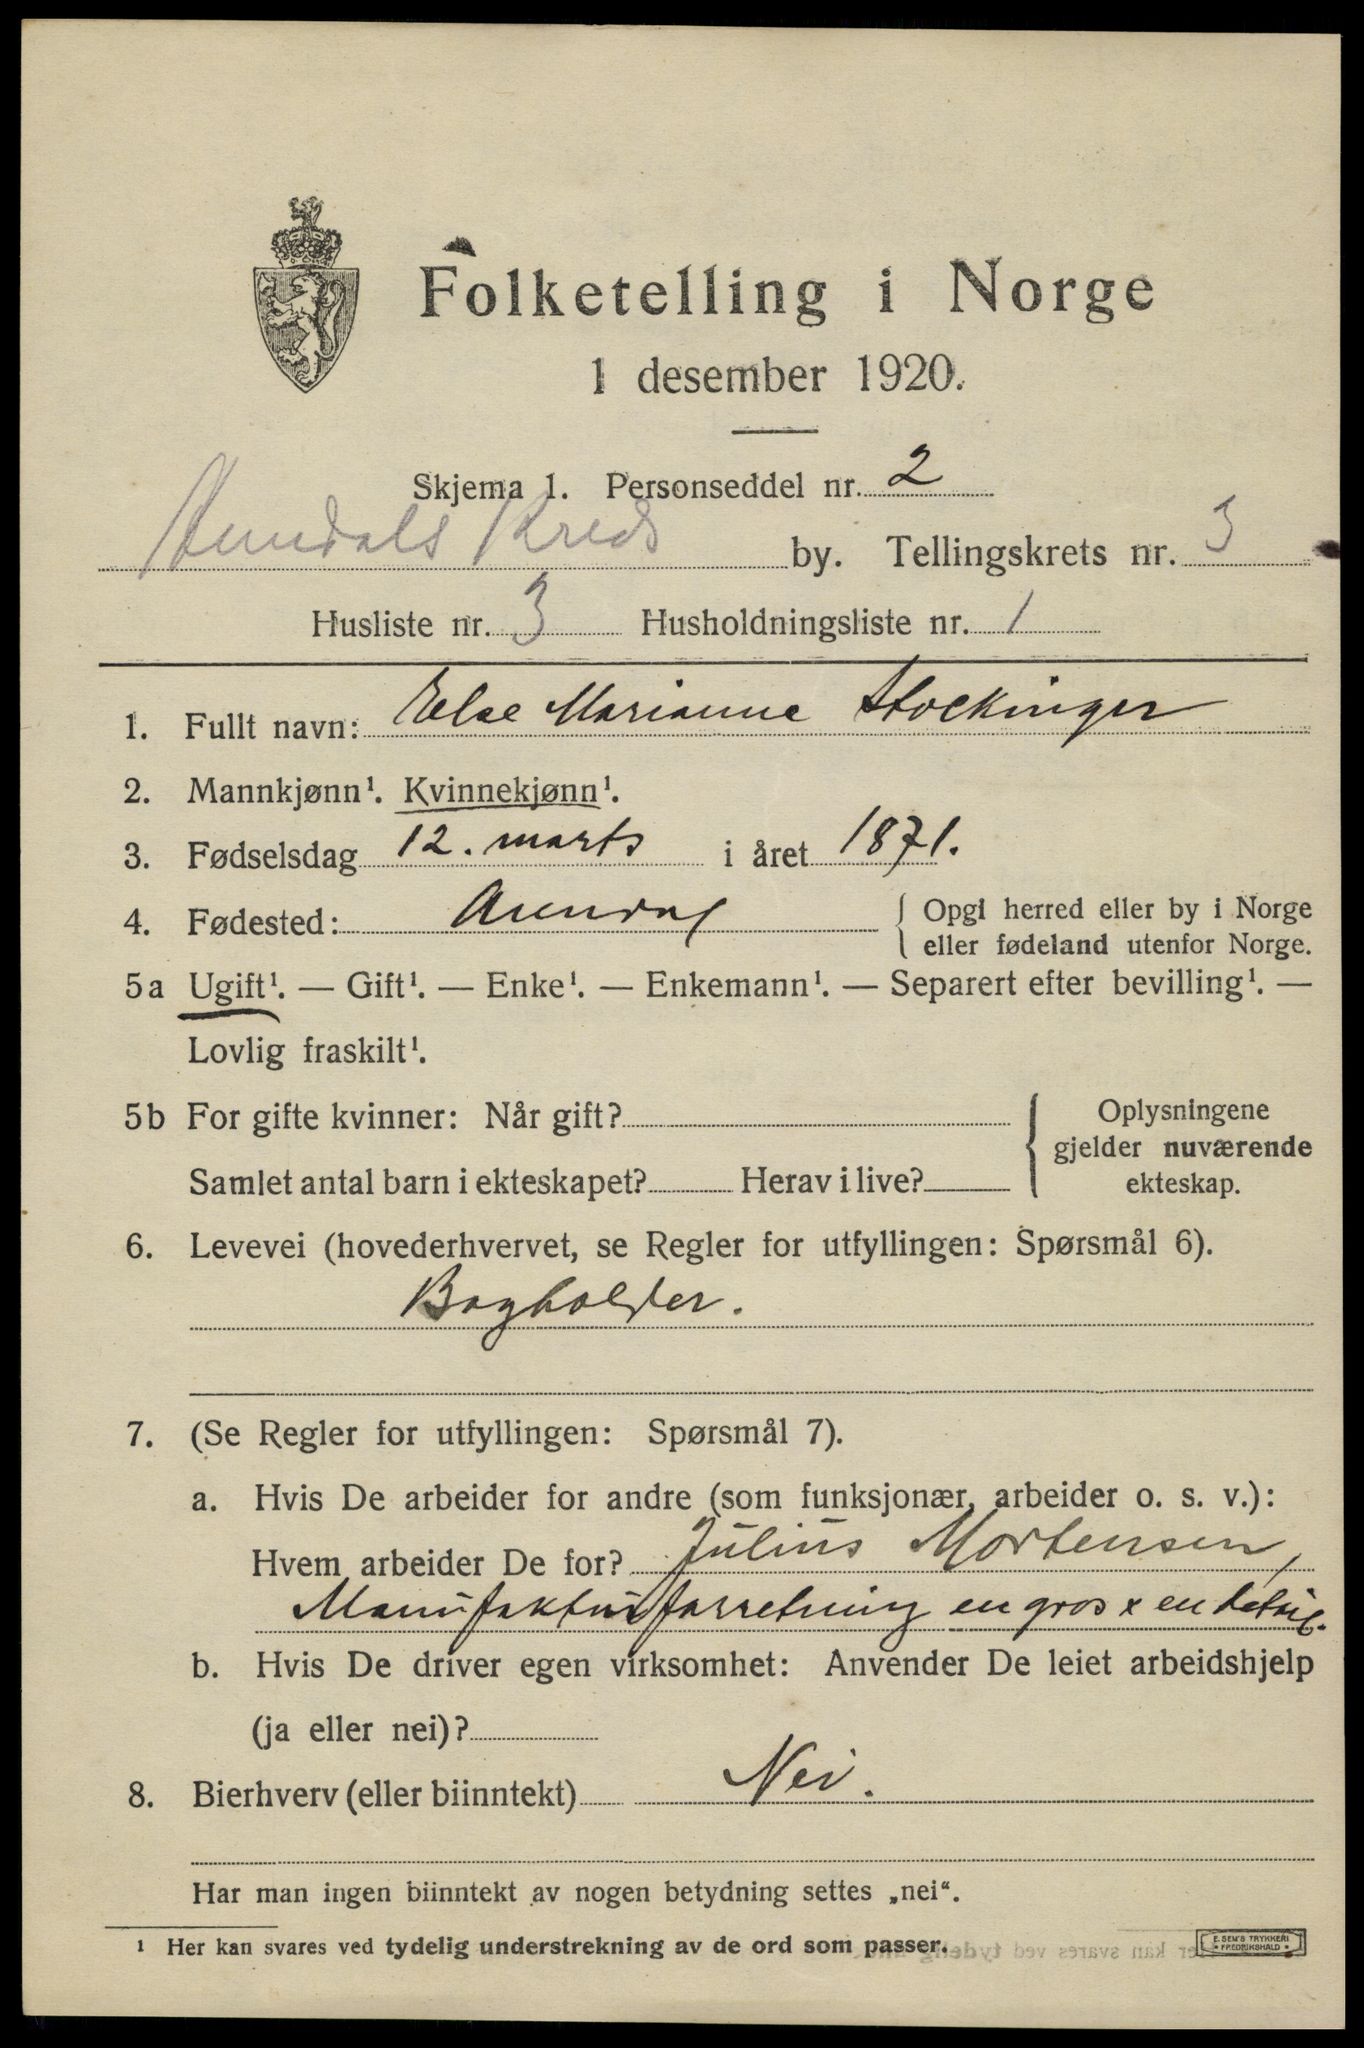 Folketelling i Norge
1 desember 1920.
Skjema 1. Personseddel nr. 2
Arendals Kreds by. Tellingskrets nr. 3
Husliste nr. 3 Husholdningsliste nr. 1
1. Fullt navn: Else Marianne Stockinger
2. Mannkjønn¹. Kvinnekjønn¹.
3. Fødselsdag 12. marts i året 1871.
4. Fødested: Arendal { Opgi herred eller by i Norge
eller fødeland utenfor Norge.
5a Ugift¹. — Gift¹. — Enke¹. — Enkemann¹. — Separert efter bevilling¹. —
Lovlig fraskilt¹.
5b For gifte kvinner: Når gift? { Oplysningene
gjelder nuværende
Samlet antal barn i ekteskapet? Herav i live? ekteskap.
6. Levevei (hovederhvervet, se Regler for utfyllingen: Spørsmål 6).
Bogholder.
7. (Se Regler for utfyllingen: Spørsmål 7).
a. Hvis De arbeider for andre (som funksjonær, arbeider o. s. v.):
Hvem arbeider De for? Julius Mortensen,
Manufakturforretning en gros & en detail.
b. Hvis De driver egen virksomhet: Anvender De leiet arbeidshjelp
(ja eller nei)?
8. Bierhverv (eller biinntekt) Nei.
Har man ingen biinntekt av nogen betydning settes „nei“.
¹ Her kan svares ved tydelig understrekning av de ord som passer.
E. SEM'S TRYKKERI
FREDRIKSHALD